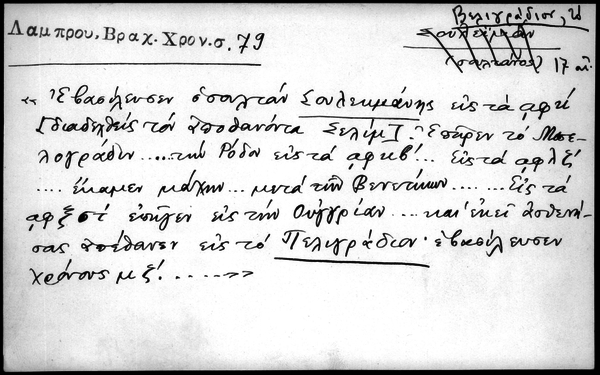 Βελιγράδιον, τὸ
Λαμπρου, Βραχ. Χρον. σ. 79
Σουλεϊμὰν
(σαλτᾶνος) 17 αἰ.
« Ἐβασίλευσεν ὁ σολτὰν Σουλεκμάνης εἰς τὰ ͵αφκʹ
[διαδεχθεὶς τὸν ἀποθανόντα Σελὶμ Ι]. Ἐπῆρεν τὸ Μπε-
λογράδιν ..... τὴν Ρόδον εἰς τὰ ͵αφκβʹ... εἰς τὰ ͵αφλζʹ
.... ἔκαμεν μάχην ... μετὰ τῶν Βενετίκων ..... Εἰς τὰ
͵αφξστʹ ἐπῆγεν εἰς τὴν Οὐγγρίαν ... καὶ ἐκεῖ ἀσθενή-
σας ἀπέθανεν εἰς τὸ Πελιγράδιον· ἐβασίλευσεν
χρόνους μζʹ. ..... »